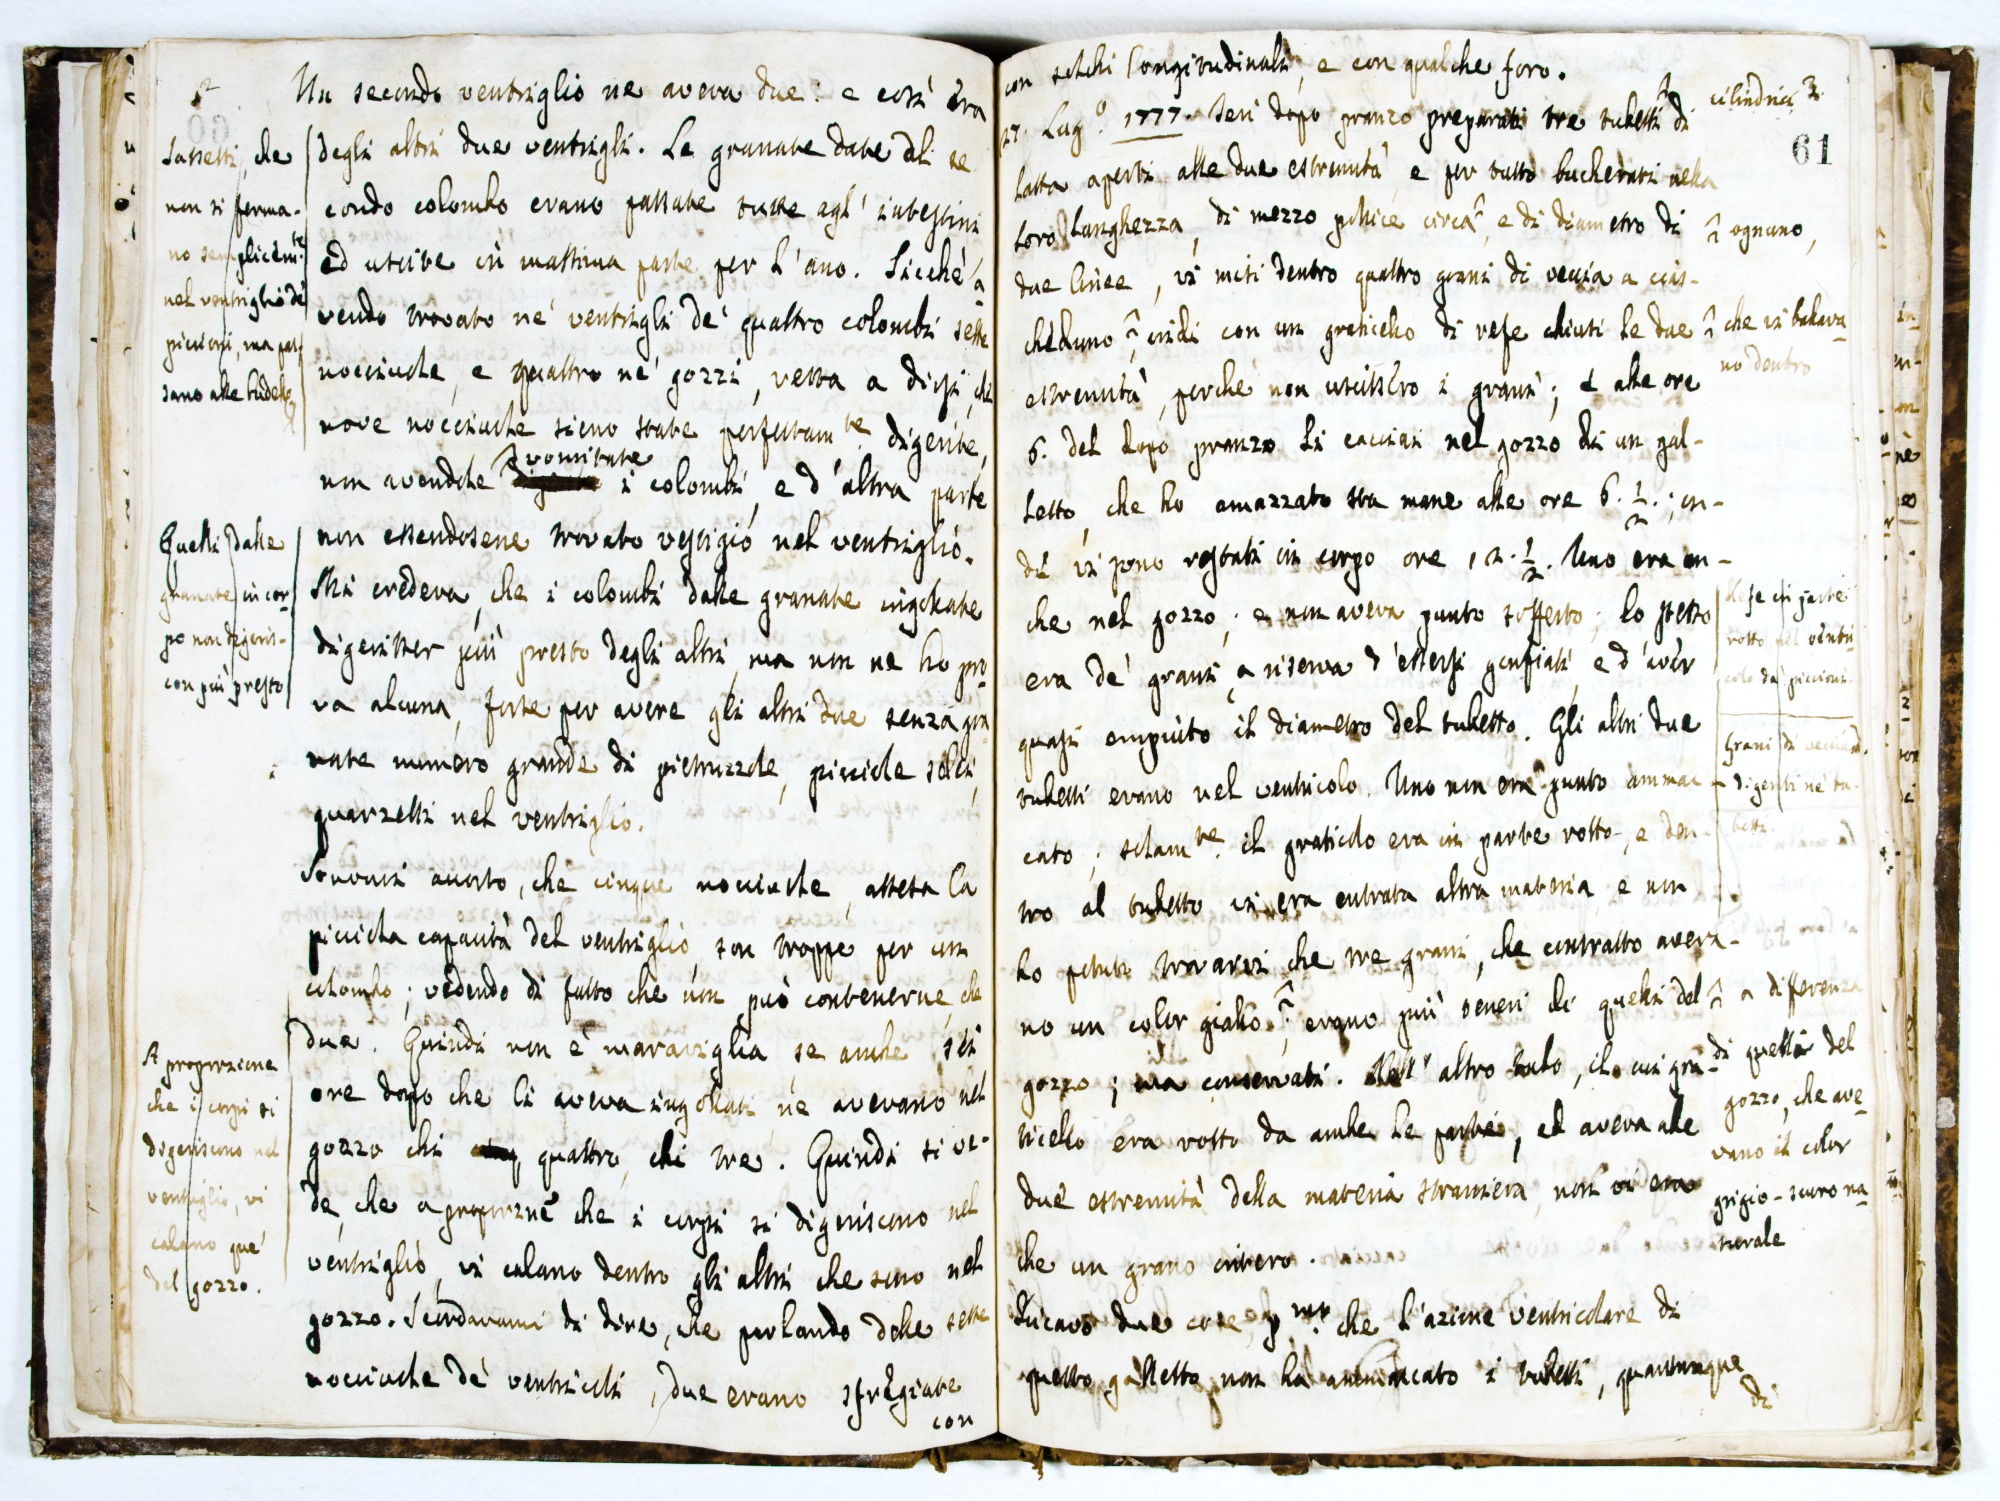 Un secondo ventriglio ne aveva due: e così era
degli altri due ventrigli. Le granate date al se
condo colombo erano passate tutte agl' intestini
ed uscite in massima parte per l'ano. Sicchè a
vendo trovato ne' ventrigli de' quattro colombi sette
nocciuole, e quattro ne' gozzi, resta a dirsi, che
nove nocciuole sieno state perfettam.te digerite,
non avendole vomitate i colombi, e d'altra parte
non essendosene trovato vestigio nel ventriglio.
Mi credeva, che i colombi dalle granate ingoiate
digerisser più presto degli altri, ma non ne ho pro
va alcuna, forse per avere gli altri due senza gra
nate numero grande di pietruzzole, picciole selci,
quarzetti nel ventriglio.
Sonomi avvisto, che cinque nocciuole, attesa la
picciola capacità del ventriglio, son troppe per un
colombo; vedendo di fatto che non può contenerne, che
due. Quindi non è maraviglia se anche sei
ore dopo che li aveva ingoiati ne avevano nel
gozzo chi quattro, chi tre. Quindi si ve-
de, che a proporzne che i corpi si digeriscono nel
ventriglio, vi calano dentro gli altri che sono nel
gozzo. Scordavami di dire, che parlando delle sette
nocciuole de' ventricoli, due erano sfregiate
con
2
Sassetti, che
non si ferma-
no semplicem.te
nel ventriglio di
piccioni, ma pas-
sano alle budella
Quelli dalle
granate in cor-
po non digeris-
con più presto
A proporzione
che i corpi si
digeriscono nel
ventriglio, vi
calano que'
del gozzo.
con solchi longitudinali, e con qualche foro.
27. Lug.o 1777. Ieri dopo pranzo preparati tre tubetti di
latta aperti alle due estremità e per tutto bucherati nella
loro lunghezza, di mezzo pollice circa, e di diametro di
due linee, vi misi dentro quattro grani di veccia a cias-
cheduno, indi con un graticello di refe chiusi le due
estremità, perchè non uscissero i grani; e alle ore
6. del dopo pranzo li cacciai nel gozzo di un gal-
letto, che ho amazzato sta mane alle ore 6. 1/2.; on-
de vi sono restati in corpo ore 12. 1/2. Uno era an-
che nel gozzo; e non aveva punto sofferto; lo stesso
era de' grani, a riserva d'essersi gonfiati, e d'aver
quasi empiuto il diametro del tubetto. Gli altri due
tubetti erano nel ventricolo. Uno non era punto ammac
cato; solam.te il graticolo era in parte rotto, e den-
tro al tubetto vi era entrata altra materia e non
ho potuto trovarvi che tre grani, che contratto aveva-
no un color giallo, erano più teneri di quelli del
gozzo; ma conservati. Nell' altro tubo, il cui gra-
ticello era rotto da ambe le parti, ed aveva alle
due estremità della materia straniera, non vi era
che un grano intero.
Ricavo due cose, p.mo che l'azione ventricolare di
questo galletto non ha ammaccato i tubetti, quantunque
di
cilindrici
61
ognuno,
che vi ballava-
no dentro
Refe in parte
rotto nel ventri
colo da' piccioni.
Grani di veccia
digeriti ne' tu-
betti.
a differenza
di quelli del
gozzo, che ave-
vano il color
grigio-scuro na-
turale